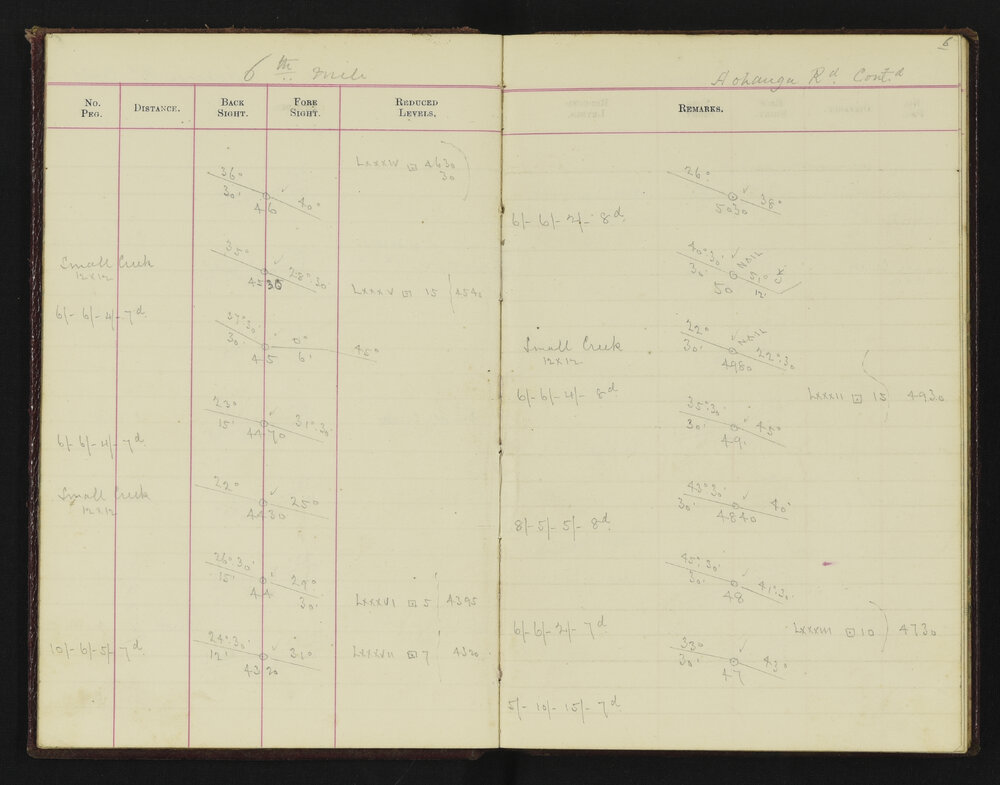 6th Mile
No. Peg. Distance. Back Sight. Fore Sight. Reduced Levels.
LXXXIV ⊡ 4630
30
36°
30' 40°
46
35°
Small Creek
12x12
28°.30'
4530
LXXXV ⊡ 15 4540
6/- 6/- 4/- 7d
37°.30'
30' 0° 45°
45 6'
23°
15' 31°.30'
4470
6/- 6/- 4/- 7d
22°
Small Creek
12x12
25°
4430
26°.30'
15' 29°
44 30'
LXXXVI ⊡ 5 4395
24°.30'
10/- 6/- 5/- 7d
12' 31°
4320
LXXXVII ⊡ 7 4320
6
Aohanga Rd. Contd
Remarks.
26°
38°
5030
6/- 6/- 4/- 8d
40°.30' NAIL
30' 51°
50 12'
22° NAIL
Small Creek
12x12
30' 22°.30
4980
6/- 6/- 4/- 8d
LXXXII ⊡ 15 4930
35°.30'
30' 45°
49
43°.30'
30' 40°
4840
8/- 5/- 5/- 8d
45°.30'
30' 41°.30'
48
6/- 6/- 4/- 7d
LXXXIII ⊡ 10 4730
33°
30' 43°
47
5/- 10/- 15/- 7d